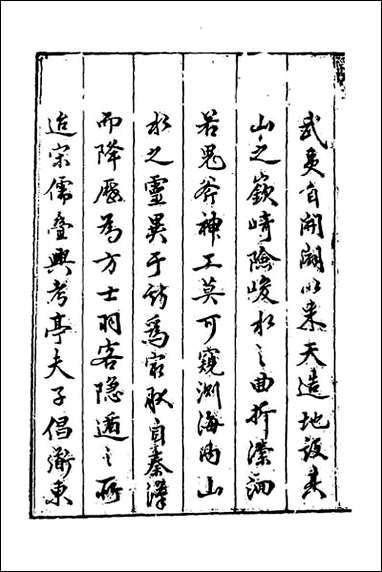 武夷自開闢以来天造地設其
山之嶔崎險峻水之曲折瀠洄
若鬼斧神工莫可窺測海内山
水之靈異于斯爲最耿自秦漢
而降歴為方士羽客隐遁之所
迨宋儒叠興考亭夫子倡衟東